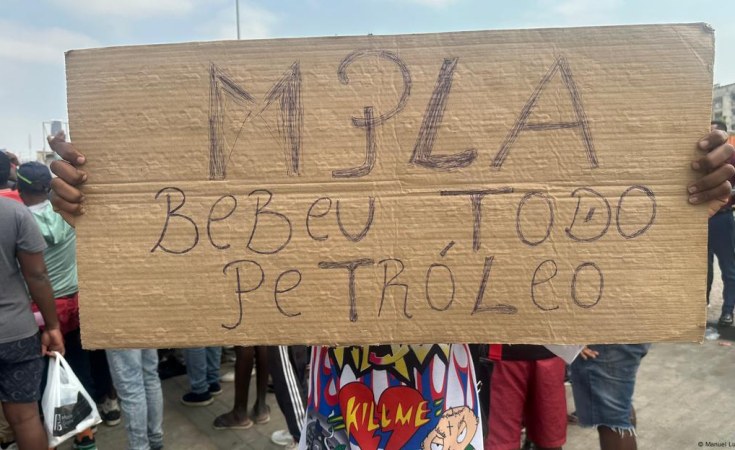 MPLA
BeBeU TODO
PeTRÓLeo
KILL ME
© Manuel Lu